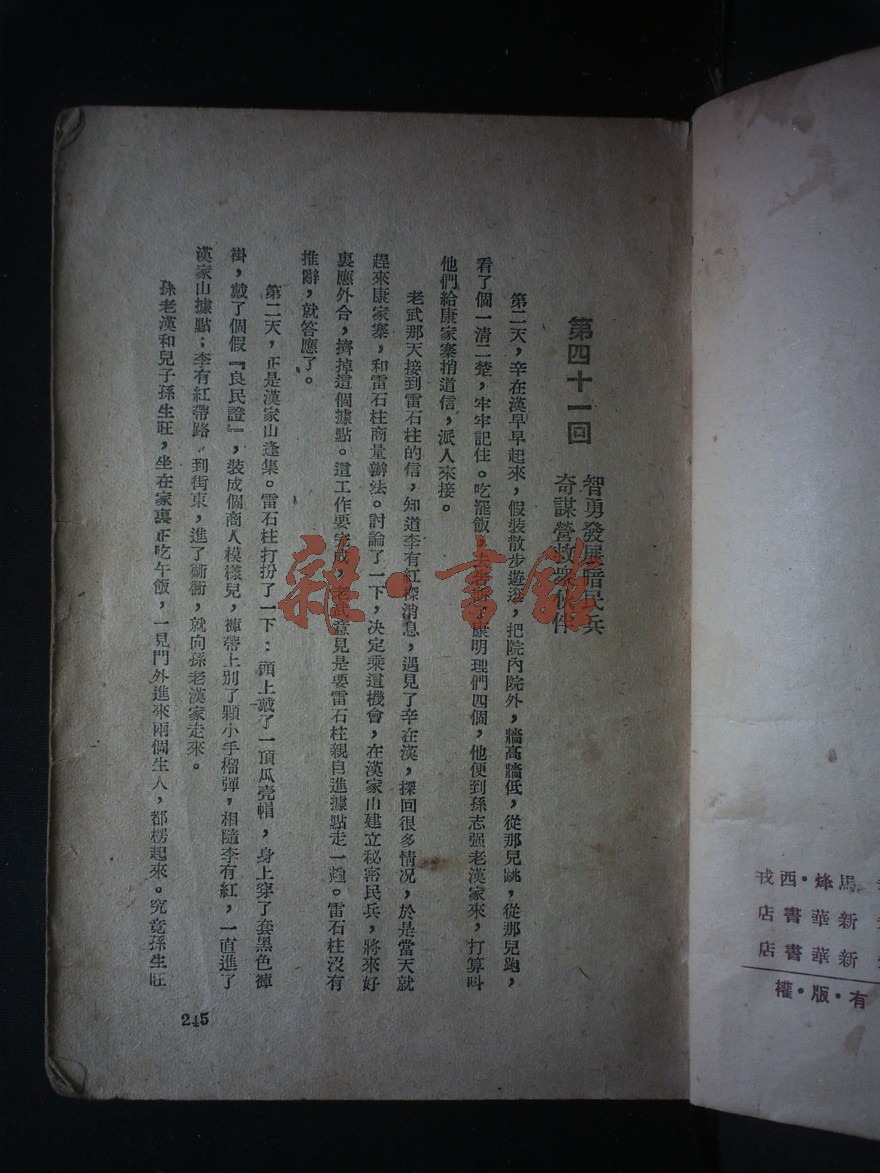 第四十一回
智勇發展暗民兵
奇謀營救衆伙伴
第二天，辛在漢早早起來，假裝散步遊逛，把院內院外，牆高牆低，從那兒跳，從那兒跑，
看了個一清二楚，牢牢記住。吃罷飯，康明理們四個，他便到孫志强老漢家來，打算叫
他們給康家寨捎道信，派人來接。
老武那天接到雷石柱的信，知道李有紅探消息，遇見了辛在漢，探回很多情况，於是當天就
趕來康家寨，和雷石柱商量辦法。討論了一下，决定乘這機會，在漢家山建立秘密民兵，將來好
裏應外合，擠掉這個據點。這工作要完成，老武意見是要雷石柱親自進據點走一趟。雷石柱沒有
推辭，就答應了。
第二天，正是漢家山逢集。雷石柱打扮了一下：頭上戴了一頂瓜壳帽，身上穿了套黑色褲
褂，戴了個假『良民證』，裝成個商人模樣兒，褲帶上別了顆小手榴彈，相隨李有紅，一直進了
漢家山據點；李有紅帶路，到街東，進了衚衕，就向孫老漢家走來。
孫老漢和兒子孫生旺，坐在家裏正吃午飯，一見門外進來兩個生人，都楞起來。究竟孫生旺
245
雜·書館
馬烽·西戎
新華書店
新華書店
有·版·權